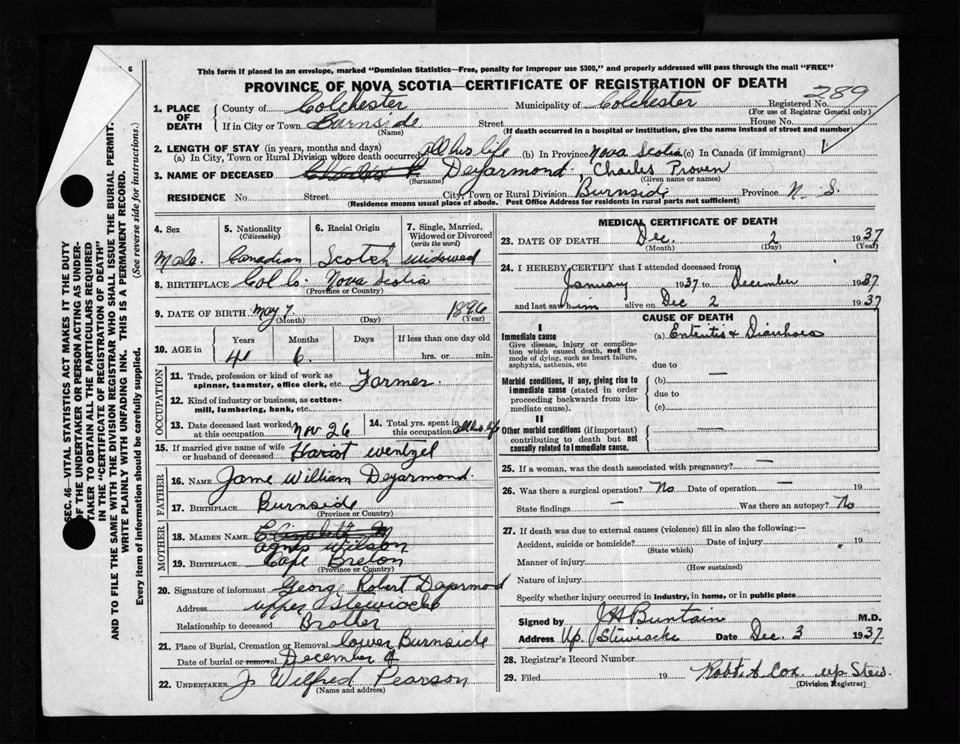 6
This form if placed in an envelope, marked "Dominion Statistics—Free, penalty for improper use $300," and properly addressed will pass through the mail "FREE"
PROVINCE OF NOVA SCOTIA—CERTIFICATE OF REGISTRATION OF DEATH
289
1. PLACE OF DEATH County of Colchester Municipality of Colchester Registered No.
(For use of Registrar General only)
If in City or Town Burnside Street House No.
(Name) (If death occurred in a hospital or institution, give the name instead of street and number)
2. LENGTH OF STAY (in years, months and days)
(a) In City, Town or Rural Division where death occurred all his life (b) In Province Nova Scotia (c) In Canada (if immigrant)
3. NAME OF DECEASED Charles P. Dejarmond Charles Proven
(Surname) (Given name or names)
RESIDENCE No. Street City, Town or Rural Division Burnside Province N. S.
(Residence means usual place of abode. Post Office Address for residents in rural parts not sufficient)
4. Sex 5. Nationality (Citizenship) 6. Racial Origin 7. Single, Married, Widowed or Divorced (write the word)
Male Canadian Scotch widowed
8. BIRTHPLACE Col Co. Nova Scotia
(Province or Country)
9. DATE OF BIRTH May 7. 1896
(Month) (Day) (Year)
10. AGE in Years Months Days If less than one day old
41 6 hrs. or min.
OCCUPATION
11. Trade, profession or kind of work as spinner, teamster, office clerk, etc. Farmer.
12. Kind of industry or business, as cotton-mill, lumbering, bank, etc.
13. Date deceased last worked at this occupation Nov 26 14. Total yrs. spent in this occupation all his life
15. If married give name of wife or husband of deceased Hariot Wentzel
FATHER
16. NAME Jame William Dejarmond
17. BIRTHPLACE Burnside
(Province or Country)
MOTHER
18. MAIDEN NAME Elizabeth M
agnes Wilson
19. BIRTHPLACE Cape Breton
(Province or Country)
20. Signature of informant George Robert Dejarmond
Address upper Stewiacke
Relationship to deceased Brother
21. Place of Burial, Cremation or Removal lower Burnside
Date of burial or removal December 4
22. UNDERTAKER J Wilfred Pearson
(Name and address)
MEDICAL CERTIFICATE OF DEATH
23. DATE OF DEATH Dec. 2 1937
(Month) (Day) (Year)
24. I HEREBY CERTIFY that I attended deceased from
January 1937 to December 1937
and last saw him alive on Dec 2 1937
CAUSE OF DEATH
I
Immediate cause (a) Enteritis & Diarrhoea
Give disease, injury or complication which caused death, not the mode of dying, such as heart failure, asphyxia, asthenia, etc
due to
Morbid conditions, if any, giving rise to immediate cause (stated in order proceeding backwards from immediate cause).
(b) —
due to
(c)
II
Other morbid conditions (if important) contributing to death but not causally related to immediate cause. —
25. If a woman, was the death associated with pregnancy? —
26. Was there a surgical operation? No Date of operation — 19
State findings — Was there an autopsy? No
27. If death was due to external causes (violence) fill in also the following:—
Accident, suicide or homicide? Date of injury 19
(State which)
Manner of injury
(How sustained)
Nature of injury
Specify whether injury occurred in industry, in home, or in public place
Signed by J H Buntain M.D.
Address Up. Stewiacke Date Dec. 3 1937
28. Registrar's Record Number
29. Filed 19 Robt A Cox up Stew.
(Division Registrar)
SEC. 46—VITAL STATISTICS ACT MAKES IT THE DUTY
OF THE UNDERTAKER OR PERSON ACTING AS UNDER-
TAKER TO OBTAIN ALL THE PARTICULARS REQUIRED
IN THE "CERTIFICATE OF REGISTRATION OF DEATH"
AND TO FILE THE SAME WITH THE DIVISION REGISTRAR WHO SHALL ISSUE THE BURIAL PERMIT.
WRITE PLAINLY WITH UNFADING INK. THIS IS A PERMANENT RECORD.
Every item of information should be carefully supplied. (See reverse side for instructions.)